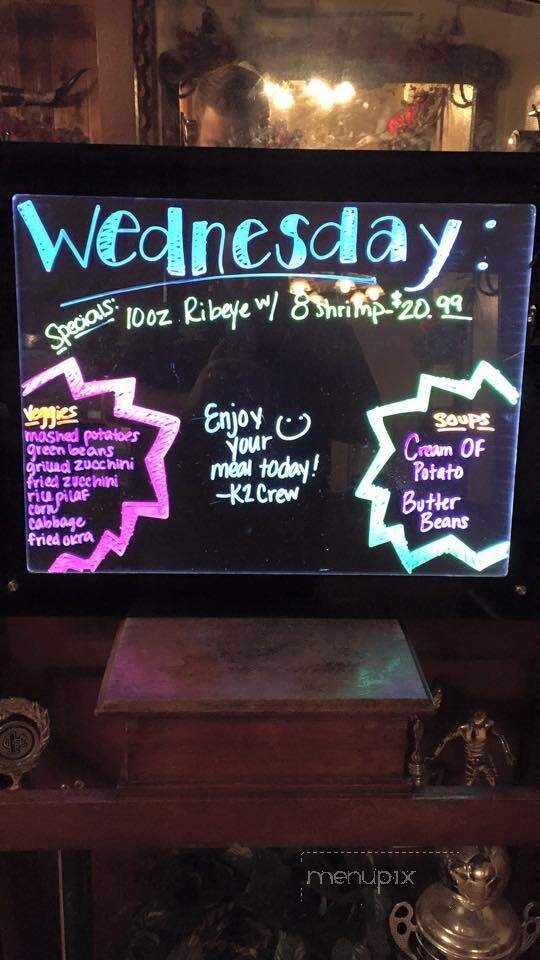 Wednesday:
Specials: 10oz Ribeye w/ 8 shrimp-$20.99
Veggies
mashed potatoes
green beans
grilled zucchini
fried zucchini
rice pilaf
corn
cabbage
fried okra
Enjoy
your
meal today!
-K2 Crew
Soups
Cream OF
Potato
Butter
Beans
menupix